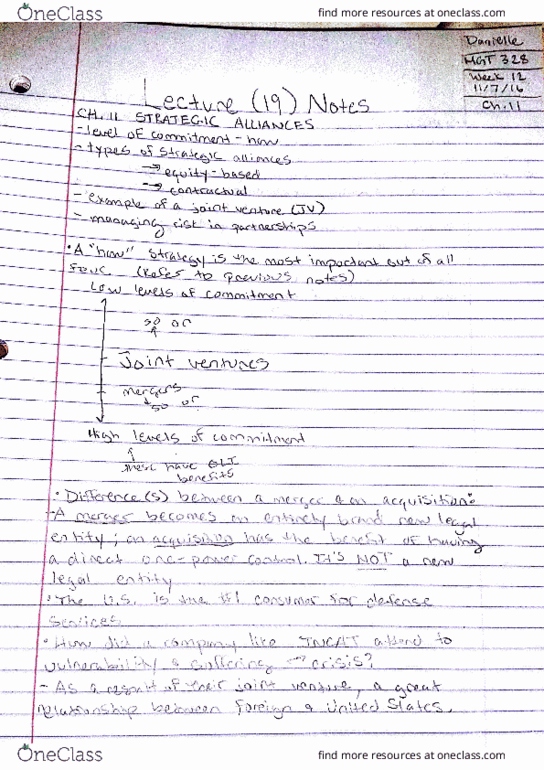 OneClass
find more resources at oneclass.com
Danielle
MGT 328
Week 12
11/7/16
Ch. 11
Lecture (19) Notes
CH. 11 STRATEGIC ALLIANCES
- level of commitment - how
- types of strategic alliances
→ equity-based
→ contractual
- example of a joint venture (JV)
- managing risk in partnerships
• A "how" strategy is the most important out of all
four (refer to previous notes)
Low levels of commitment
50 or
Joint ventures
mergers
50 or
High levels of commitment
these have OLI
benefits
• Difference(s) between a merger & an acquisition:
- A merger becomes an entirely brand new legal
entity; an acquisition has the benefit of having
a direct one-power control. It's NOT a new
legal entity
• The U.S. is the #1 consumer for defense
services
• How did a company like attend to
vulnerability & suffering → crisis?
- As a result of their joint venture, a great
relationship between foreign & United States.
OneClass
find more resources at oneclass.com